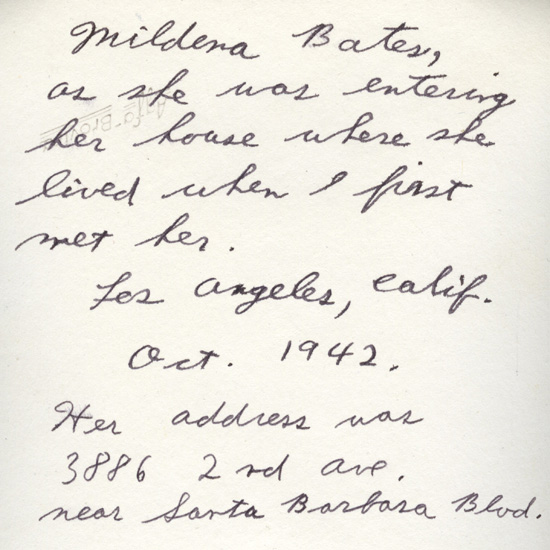 Mildena Bates,
as she was entering
her house where she
lived when I first
met her.
Los Angeles, Calif.
Oct. 1942.
Her address was
3886 2nd ave.
near Santa Barbara Blvd.